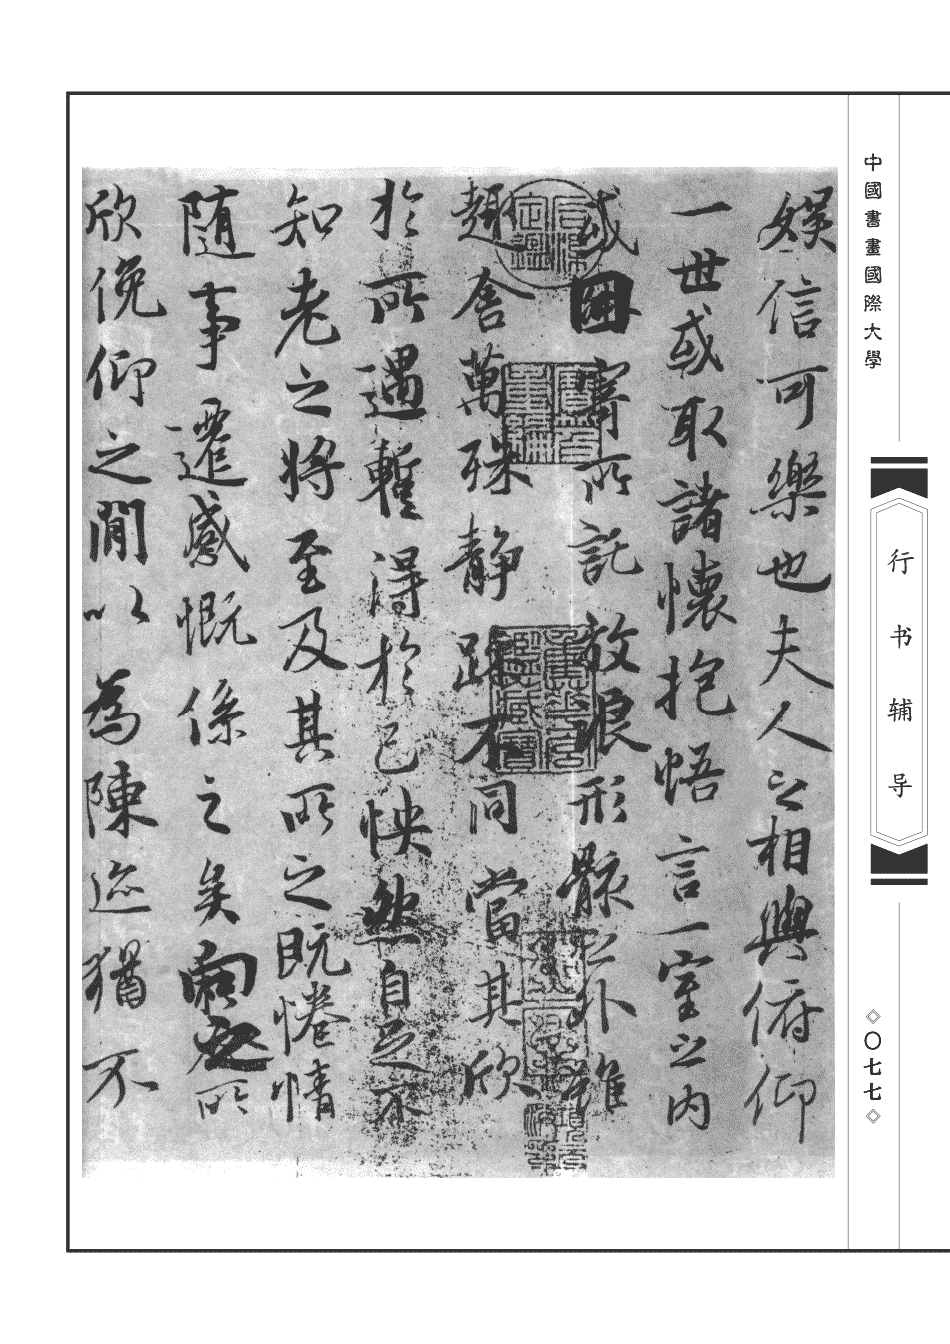 中國書畫國際大學
行书辅导
〇七七
娱信可樂也夫人之相與俯仰
一世或取諸懷抱悟言一室之内
或因寄所託放浪形骸之外雖
趣舍萬殊静躁不同當其欣
於所遇暫得於己怏然自足不
知老之將至及其所之既惓情
隨事遷感慨係之矣向之所
欣俛仰之閒以為陳迹猶不